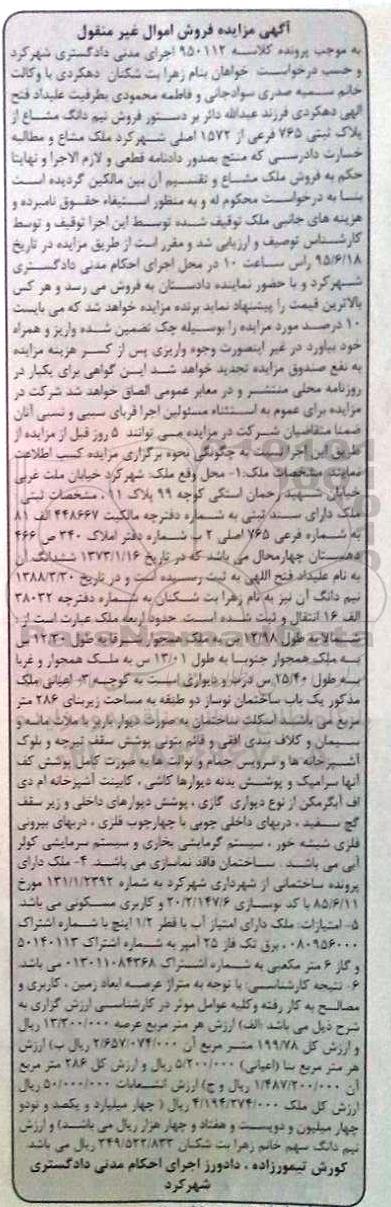 آگهی مزایده فروش اموال غیر منقول
به موجب پرونده کلاسه ۹۵۰۱۱۲ اجرای مدنی دادگستری شهرکرد
و حسب درخواست خواهان بنام زهرا بت شکنان دهکردی با وکالت
خانم سمیه صدری سوادجانی و فاطمه محمودی بطرفیت علیداد فتح
الهی دهکردی فرزند عبدالله دائر بر دستور فروش نیم دانگ مشاع از
پلاک ثبتی ۷۶۵ فرعی از ۱۵۷۲ اصلی شهرکرد ملک مشاع و مطالبه
خسارت دادرسی که منتج بصدور دادنامه قطعی و لازم الاجرا و نهایتا
حکم به فروش ملک مشاع و تقسیم آن بین مالکین گردیده است
بنا به درخواست محکوم له و به منظور استیفاء حقوق نامبرده و
هزینه های جانبی ملک توقیف شده توسط این اجرا توقیف و توسط
کارشناس توصیف و ارزیابی شد و مقرر است از طریق مزایده در تاریخ
۹۵/۶/۱۸ راس ساعت ۱۰ در محل اجرای احکام مدنی دادگستری
شهرکرد و با حضور نماینده دادستان به فروش می رسد و هر کس
بالاترین قیمت را پیشنهاد نماید برنده مزایده خواهد شد که می بایست
۱۰ درصد مورد مزایده را بوسیله چک تضمین شده واریز و همراه
خود بیاورد در غیر اینصورت وجوه واریزی پس از کسر هزینه مزایده
به نفع صندوق مزایده تجدید خواهد شد این گواهی برای یکبار در
روزنامه محلی منتشر و در معابر عمومی الصاق خواهد شد شرکت در
مزایده برای عموم به استثناء مسئولین اجرا قربای سببی و نسبی آنان
ضمنا متقاضیان شرکت در مزایده می توانند ۵ روز قبل از مزایده از
طریق این اجرا نسبت به چگونگی نحوه برگزاری مزایده کسب اطلاعت
نمایند. مشخصات ملک:۱- محل وقع ملک: شهرکرد خیابان ملت غربی
خیابان شهید رحمان استکی کوچه ۹۹ پلاک ۱۱ ۲. مشخصات ثبتی:
ملک دارای سند ثبتی به شماره دفترچه مالکیت ۴۴۸۶۶۷ الف ۸۱
به شماره فرعی ۷۶۵ اصلی ۲ ب شماره دفتر املاک ۳۴۰ ص ۴۶۶
دهستان چهارمحال می باشد که در تاریخ ۱۳۷۳/۱/۱۶ ششدانگ آن
به نام علیداد فتح اللهی به ثبت رسیده است و در تاریخ ۱۳۸۸/۳/۳۰
نیم دانگ آن نیز به نام زهرا بت شکنان به شماره دفترچه ۳۸۰۳۲
الف ۱۶ انتقال و ثبت شده است. حدود اربعه ملک عبارت است از :
شمالا به طول ۱۲/۹۸ س به ملک همجوار شرقا به طول ۱۲/۳۰ س
به ملک همجوار جنوبا به طول ۱۳/۰۱ س به ملک همجوار و غربا
به طول ۱۵/۴۰ س درب و دیواری است به کوچه ۳- اعیانی ملک
مذکور یک باب ساختمان نوساز دو طبقه به مساحت زیربنای ۲۸۶ متر
مربع می باشد اسکلت ساختمان به صورت دیوار باربر با ملات ماسه و
سیمان و کلاف بندی افقی و قائم بتونی پوشش سقف تیرچه و بلوک
آشپزخانه ها و سرویس حمام و توالت ها به صورت کامل پوشش کف
آنها سرامیک و پوشش بدنه دیوارها کاشی ، کابینت آشپزخانه ام دی
اف آبگرمکن از نوع دیواری گازی ، پوشش دیوارهای داخلی و زیر سقف
گچ سفید ، دربهای داخلی چوبی با چهارچوب فلزی ، دربهای بیرونی
فلزی شیشه خور ، سیستم گرمایشی بخاری و سیستم سرمایشی کولر
آبی می باشد . ساختمان فاقد نماسازی می باشد. ۴- ملک دارای
پرونده ساختمانی از شهرداری شهرکرد به شماره ۱۳۱/۱/۲۳۹۲ مورخ
۸۵/۶/۱۱ با کد نوسازی ۲۰/۲/۱۴۷/۶ و کاربری مسکونی می باشد.
۵- امتیازات: ملک دارای امتیاز آب با قطر ۱/۲ اینچ با شماره اشتراک
۰۸۰۹۵۶۰۰۰ ، برق تک فاز ۲۵ آمپر به شماره اشتراک ۵۰۱۴۰۱۱۳
و گاز ۶ متر مکعبی به شماره اشتراک ۰۱۳۰۱۱۰۸۴۳۶۸ می باشد.
۶- نتیجه کارشناسی: با توجه به متراژ عرصه ابعاد زمین ، کاربری و
مصالح به کار رفته وکلیه عوامل موثر در کارشناسی ارزش گزاری به
شرح ذیل می باشد :الف) ارزش هر متر مربع عرصه ۱۳/۳۰۰/۰۰۰ ریال
و ارزش کل ۱۹۹/۷۸ متر مربع آن ۲/۶۵۷/۰۷۴/۰۰۰ ریال ب) ارزش
هر متر مربع بنا (اعیانی) ۵/۲۰۰/۰۰۰ ریال و ارزش کل ۲۸۶ متر مربع
آن ۱/۴۸۷/۲۰۰/۰۰۰ ریال و ج) ارزش انشعابات ۵۰/۰۰۰/۰۰۰ ریال
ارزش کل ملک ۴/۱۹۴/۲۷۴/۰۰۰ ریال ( چهار میلیارد و یکصد و نودو
چهار میلیون و دویست و هفتاد و چهار هزار ریال می باشد) و ارزش
نیم دانگ سهم خانم زهرا بت شکنان ۳۴۹/۵۲۲/۸۳۳ ریال می باشد.
کورش تیمورزاده ، دادورز اجرای احکام مدنی دادگستری
شهرکرد